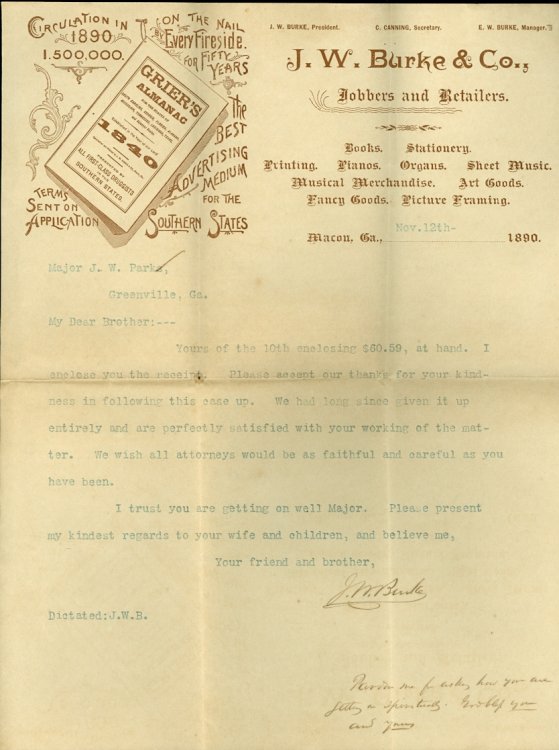 CIRCULATION IN
1890
1.500.000.
ON THE NAIL
BY EVERY FIRESIDE.
FOR FIFTY
YEARS
GRIER'S
ALMANAC
1840
ALL FIRST-CLASS DRUGGISTS
SOUTHERN STATES.
THE
BEST
ADVERTISING
MEDIUM
FOR THE
SOUTHERN STATES
TERMS
SENT ON
APPLICATION
J. W. BURKE, President. C. CANNING, Secretary. E. W. BURKE, Manager.
J. W. Burke & Co.,
Jobbers and Retailers.
Books. Stationery.
Printing. Pianos. Organs. Sheet Music.
Musical Merchandise. Art Goods.
Fancy Goods. Picture Framing.
Macon, Ga., Nov.12th- 1890.
Major J. W. Park,
Greenville, Ga.
My Dear Brother:---
Yours of the 10th enclosing $60.59, at hand. I
enclose you the receipt. Please accept our thanks for your kind-
ness in following this case up. We had long since given it up
entirely and are perfectly satisfied with your working of the mat-
ter. We wish all attorneys would be as faithful and careful as you
have been.
I trust you are getting on well Major. Please present
my kindest regards to your wife and children, and believe me,
Your friend and brother,
J.W.Burke
Dictated:J.W.B.
Pardon me for asking how you are
getting on spiritually. God bless you
and yours